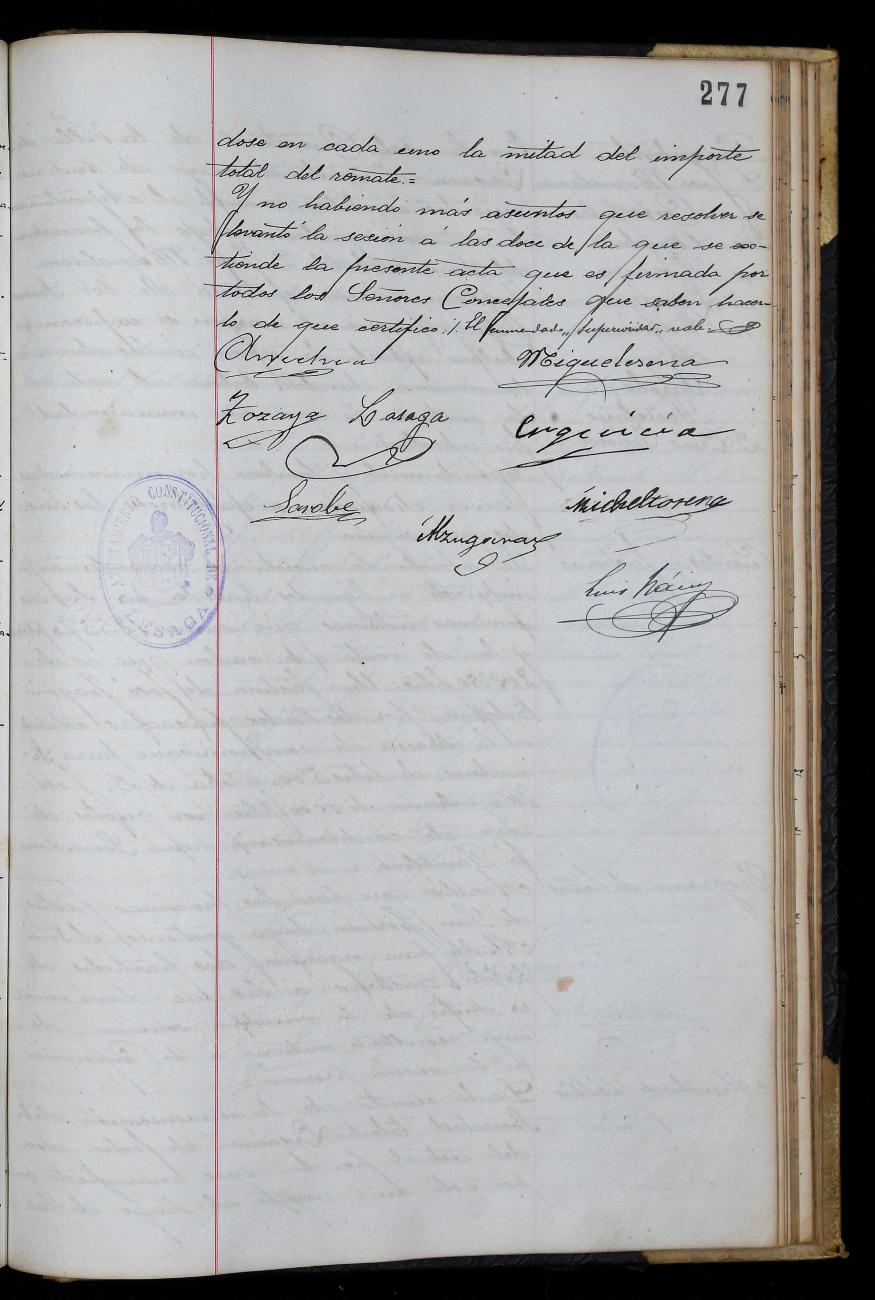 277
dose en cada uno la mitad del importe
total del remate.=
Y no habiendo más asuntos que resolver se
levantó la sesión á las doce de la que se ex-
tiende la presente acta que es firmada por
todos los Señores Concejales que saben hacer-
lo de que certifico./. El enmendado „ superioridad „ vale=
Miguelerena
Zozaya Lasaga
Sarobe Micheltorena
Alzugaray
Luis
AYUNTAMIENTO CONSTITUCIONAL DE
LESACA